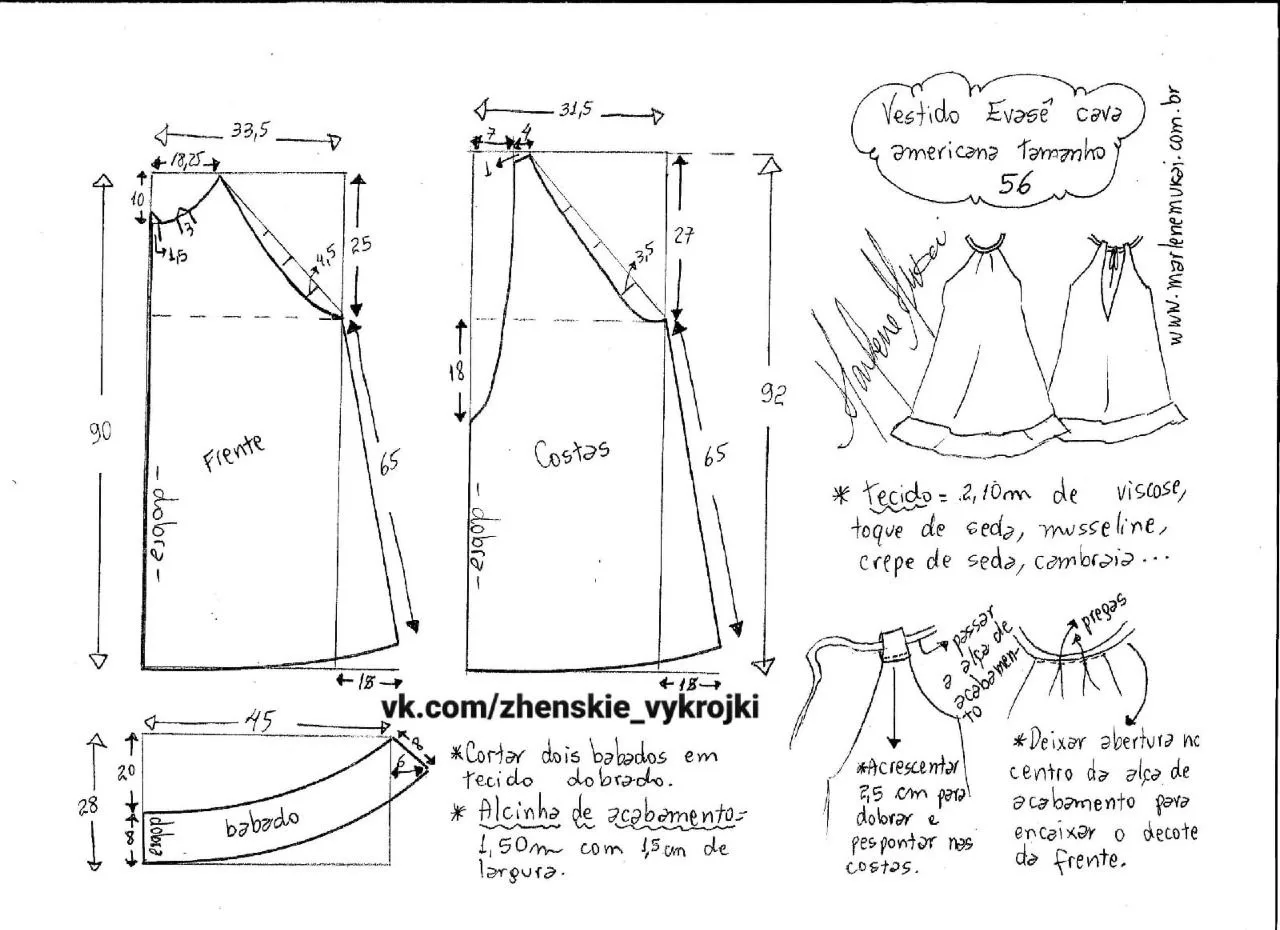 Vestido Evasê cava
americana tamanho
56
www.marlenemukai.com.br
33,5
18,25
10
1,5
3
4,5
25
90
Frente
- dobra -
65
18
31,5
7
4
1
3,5
27
18
92
Costas
- dobra -
65
18
* tecido = 2,10m de viscose,
toque de seda, musseline,
crepe de seda, cambraia...
vk.com/zhenskie_vykrojki
45
28
20
8
dobra
babado
8
6
*Cortar dois babados em
tecido dobrado.
* Alcinha de acabamento=
1,50m com 1,5cm de
largura.
passar
a alça de
acabamen-
to
*Acrescentar
2,5 cm para
dobrar e
pespontar nas
costas.
pregas
*Deixar abertura no
centro da alça de
acabamento para
encaixar o decote
da frente.
Marlene Mukai